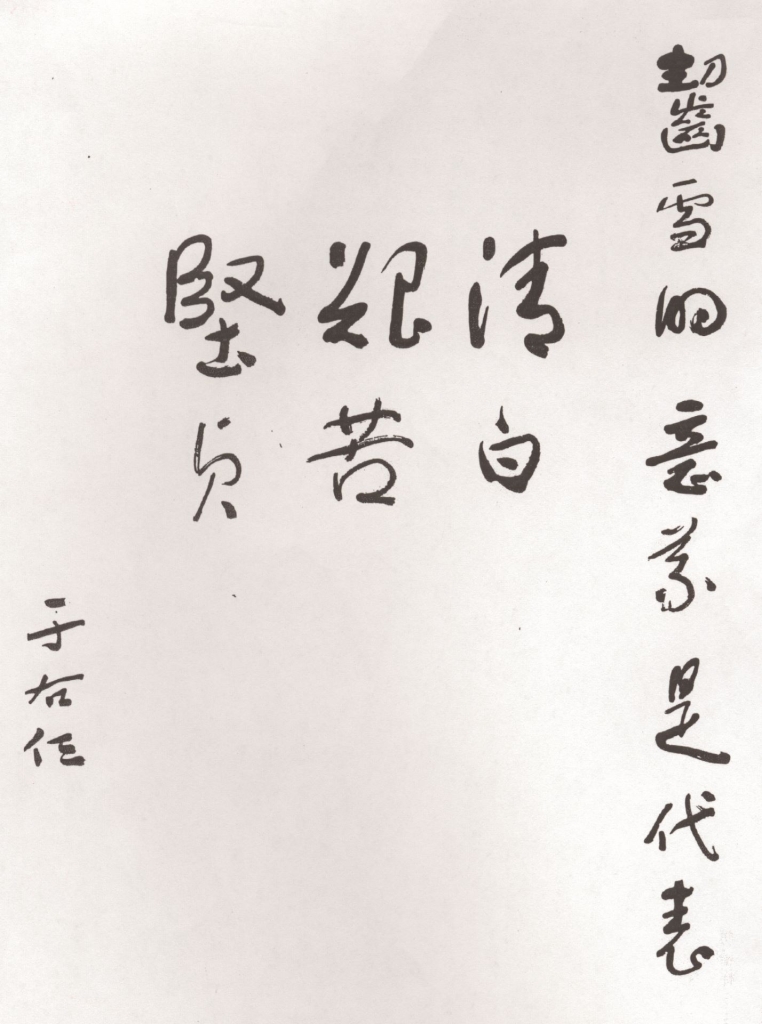 齧雪的意義是代表
清白
艱苦
堅貞
于右任